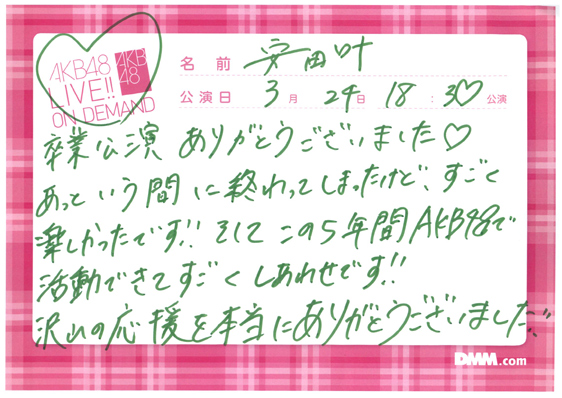 AKB48
LIVE!!
ON DEMAND
AKB
48
名前 安田叶
公演日 3月24日 18:30公演
卒業公演 ありがとうございました♡
あっという間に終わってしまったけど、すごく
楽しかったです!! そして この5年間AKB48で
活動できてすごくしあわせです!!
沢山の応援を本当にありがとうございました!!
DMM.com